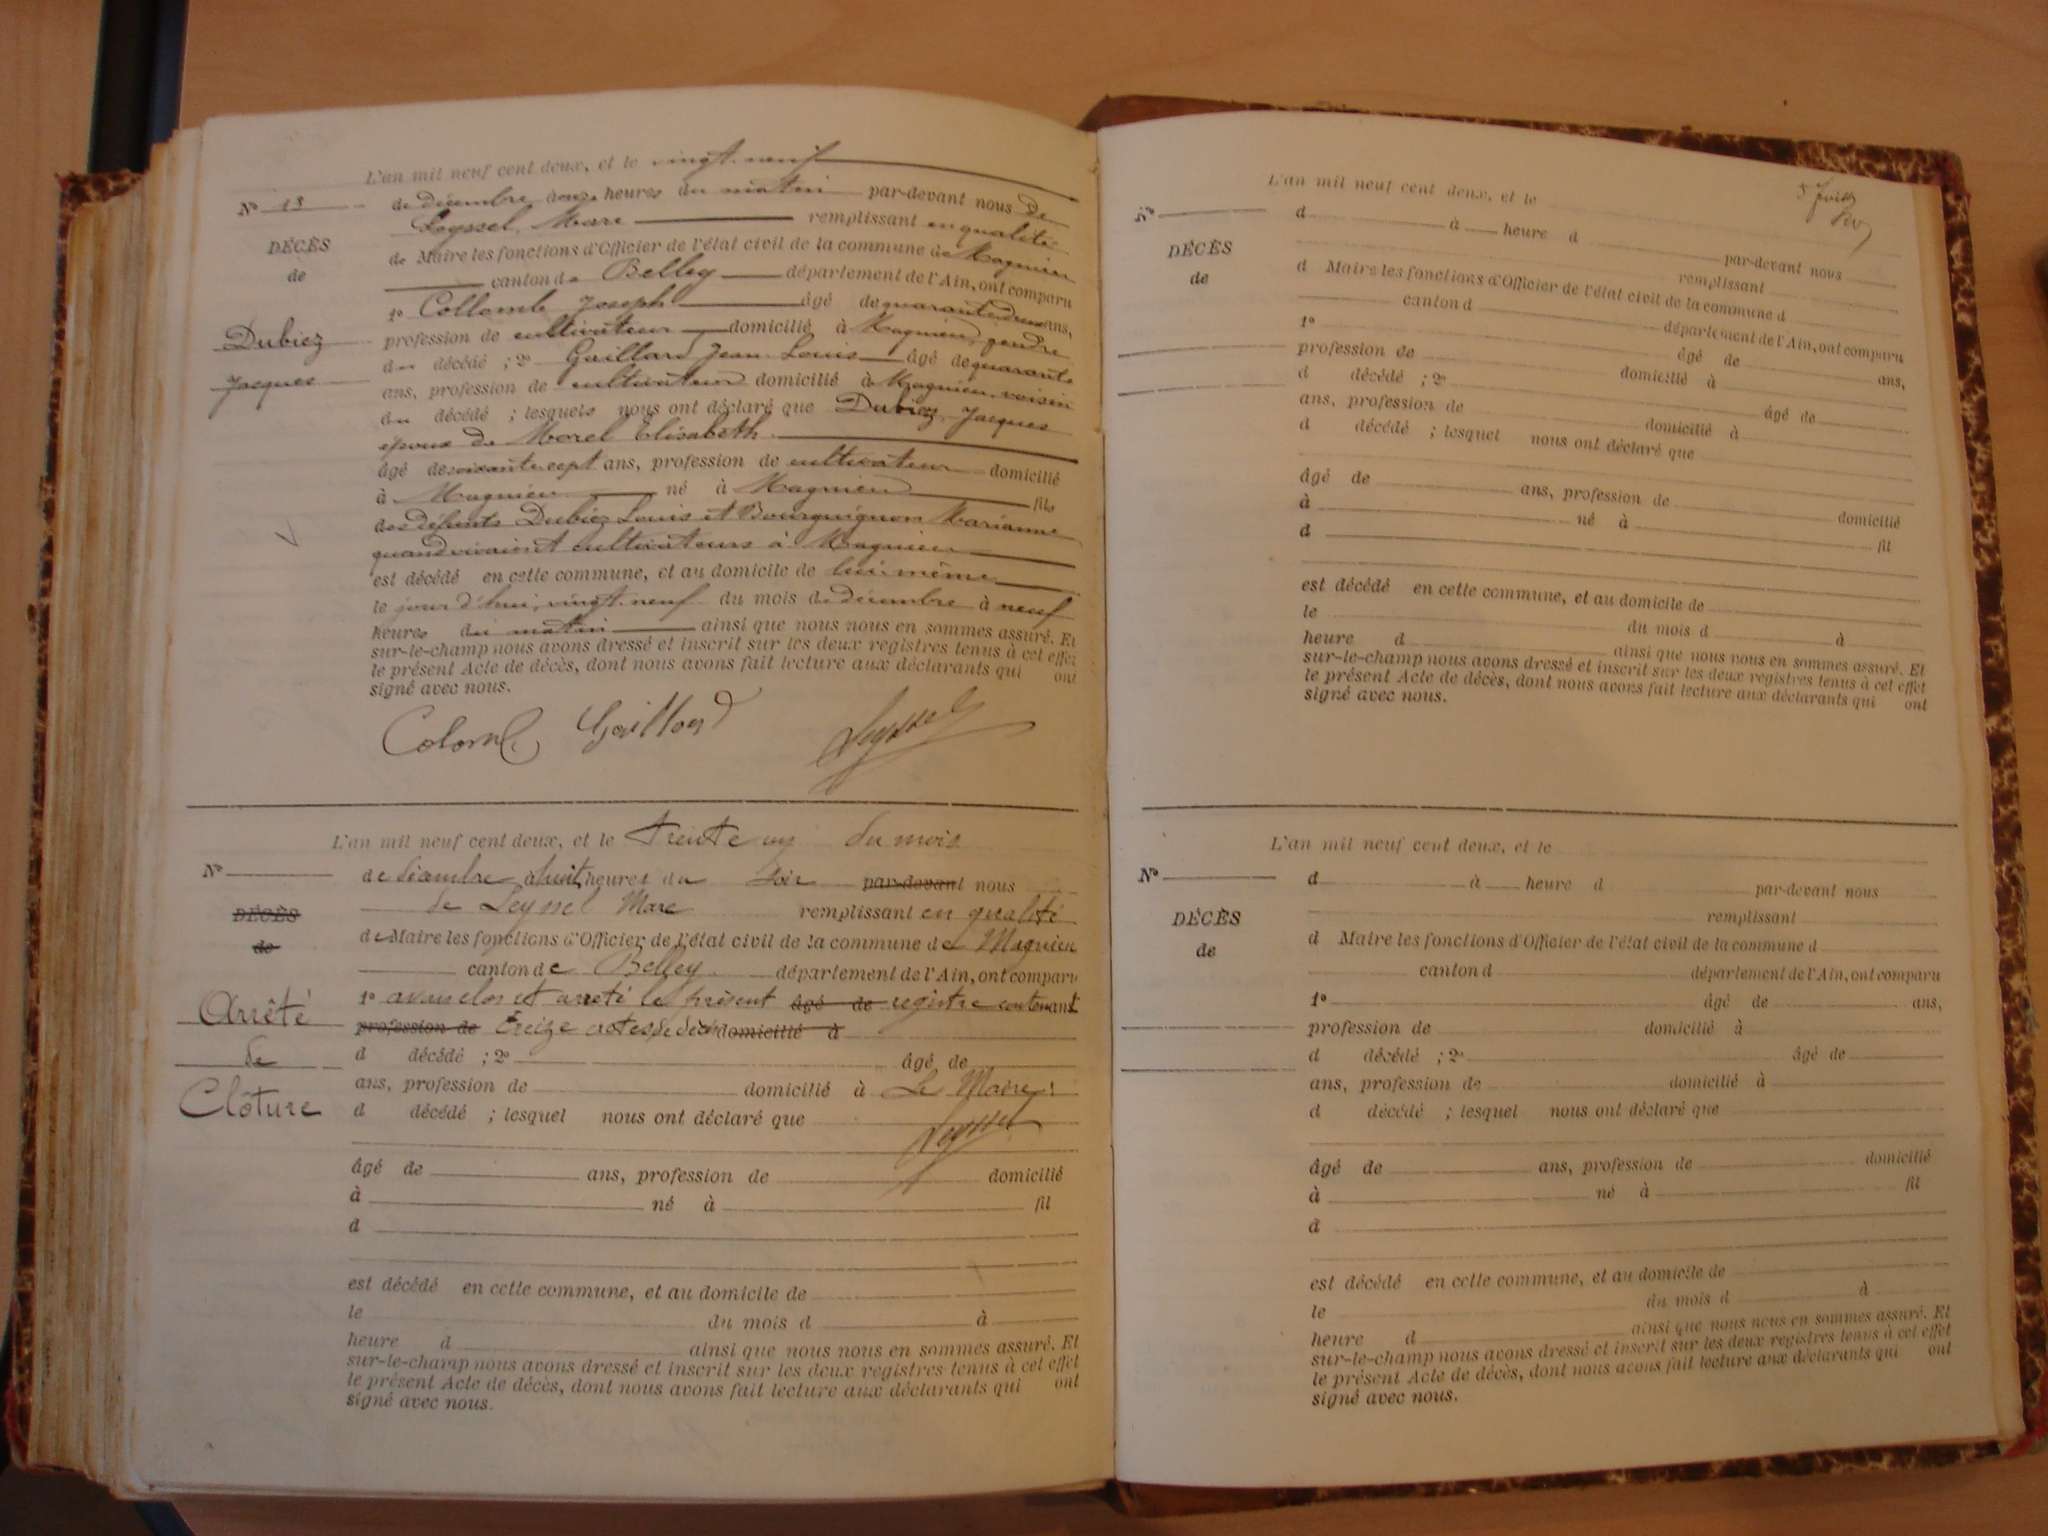 L'an mil neuf cent deux, et le vingt-neuf
No 13
de décembre onze heures du matin par-devant nous De
Seyssel, Marc remplissant en qualité
DÉCÈS
de Maire les fonctions d'Officier de l'état civil de la commune de Magnieu
de
canton de Belley département de l'Ain, ont comparu
1o Collomb Joseph âgé de quarante deux ans,
Dubiez
profession de cultivateur domicilié à Magnieu, gendre
du décédé ; 2o Gaillard Jean Louis âgé de quarante
Jacques
ans, profession de cultivateur domicilié à Magnieu, voisin
du décédé ; lesquels nous ont déclaré que Dubiez, Jacques
époux de Morel Elisabeth
âgé de soixante-sept ans, profession de cultivateur domicilié
à Magnieu né à Magnieu fils
des défunts Dubiez Louis et Bourguignon Marianne
quand vivaient cultivateurs à Magnieu
est décédé en cette commune, et au domicile de lui-même
le jour d'hui, vingt-neuf du mois de décembre à neuf
heures du matin ainsi que nous nous en sommes assuré. Et
sur-le-champ nous avons dressé et inscrit sur les deux registres tenus à cet effet
le présent Acte de décès, dont nous avons fait lecture aux déclarants qui ont
signé avec nous.
Gaillard Seyssel
L'an mil neuf cent deux, et le trente un du mois
No
de décembre à huit heures du soir par-devant nous
de Seyssel Marc remplissant en qualité
DÉCÈS
de Maire les fonctions d'Officier de l'état civil de la commune de Magnieu
de
canton de Belley département de l'Ain, ont comparu
1o avons clos et arrêté le présent âgé de registre contenant
Arrêté
profession de treize actes de décès domicilié à
de
d décédé ; 2o âgé de
ans, profession de domicilié à Le Maire :
Clôture
d décédé ; lesquel nous ont déclaré que
Seyssel
âgé de ans, profession de domicilié
à né à fil
d
est décédé en cette commune, et au domicile de
le du mois d à
heure d ainsi que nous nous en sommes assuré. Et
sur-le-champ nous avons dressé et inscrit sur les deux registres tenus à cet effet
le présent Acte de décès, dont nous avons fait lecture aux déclarants qui ont
signé avec nous.
L'an mil neuf cent deux, et le
No
d à heure d par-devant nous
remplissant
DÉCÈS
d Maire les fonctions d'Officier de l'état civil de la commune d
de
canton d département de l'Ain, ont comparu
1o âgé de ans,
profession de domicilié à
d décédé ; 2o âgé de
ans, profession de domicilié à
d décédé ; lesquel nous ont déclaré que
âgé de ans, profession de domicilié
à né à fil
d
est décédé en cette commune, et au domicile de
le du mois d à
heure d ainsi que nous nous en sommes assuré. Et
sur-le-champ nous avons dressé et inscrit sur les deux registres tenus à cet effet
le présent Acte de décès, dont nous avons fait lecture aux déclarants qui ont
signé avec nous.
L'an mil neuf cent deux, et le
No
d à heure d par-devant nous
remplissant
DÉCÈS
d Maire les fonctions d'Officier de l'état civil de la commune d
de
canton d département de l'Ain, ont comparu
1o âgé de ans,
profession de domicilié à
d décédé ; 2o âgé de
ans, profession de domicilié à
d décédé ; lesquel nous ont déclaré que
âgé de ans, profession de domicilié
à né à fil
d
est décédé en cette commune, et au domicile de
le du mois d à
heure d ainsi que nous nous en sommes assuré. Et
sur-le-champ nous avons dressé et inscrit sur les deux registres tenus à cet effet
le présent Acte de décès, dont nous avons fait lecture aux déclarants qui ont
signé avec nous.